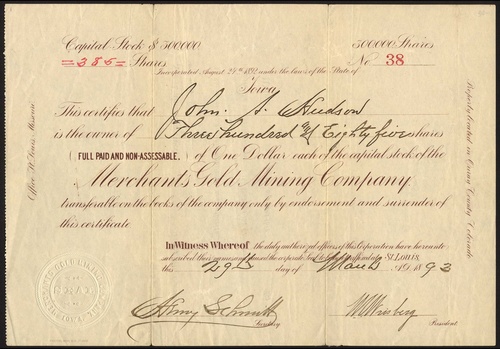 Capital Stock $ 500.000.
500.000 Shares
=385= Shares
No 38
Incorporated August 27th 1892 under the laws of the State of
Iowa
This certifies that John A. Hudson
is the owner of Three hundred & Eighty five shares
(FULL PAID AND NON-ASSESSABLE.) of One Dollar each of the capital stock of the
Merchants Gold Mining Company
transferable on the books of the company only by endorsement and surrender of
this certificate
In Witness Whereof the duly authorized officers of this Corporation have hereunto
subscribed their names and caused the corporate Seal to be affixed at St. Louis,
this 29th day of March A.D. 1893
Henry Schmitt
President
Office St. Louis, Missouri
Property located in Ouray County Colorado